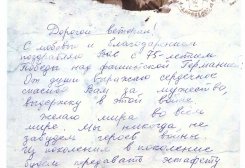 Дорогой ветеран!
С любовью и благодарностью
поздравляю Вас с 75-летием
Победы над фашистской Германией!
От души выражаю сердечное
спасибо Вам за мужество,
выдержку в этой войне.
желаю мира во всём
мире мы никогда не
забудем героев войны.
Из поколения в поколение
будем передавать эстафету